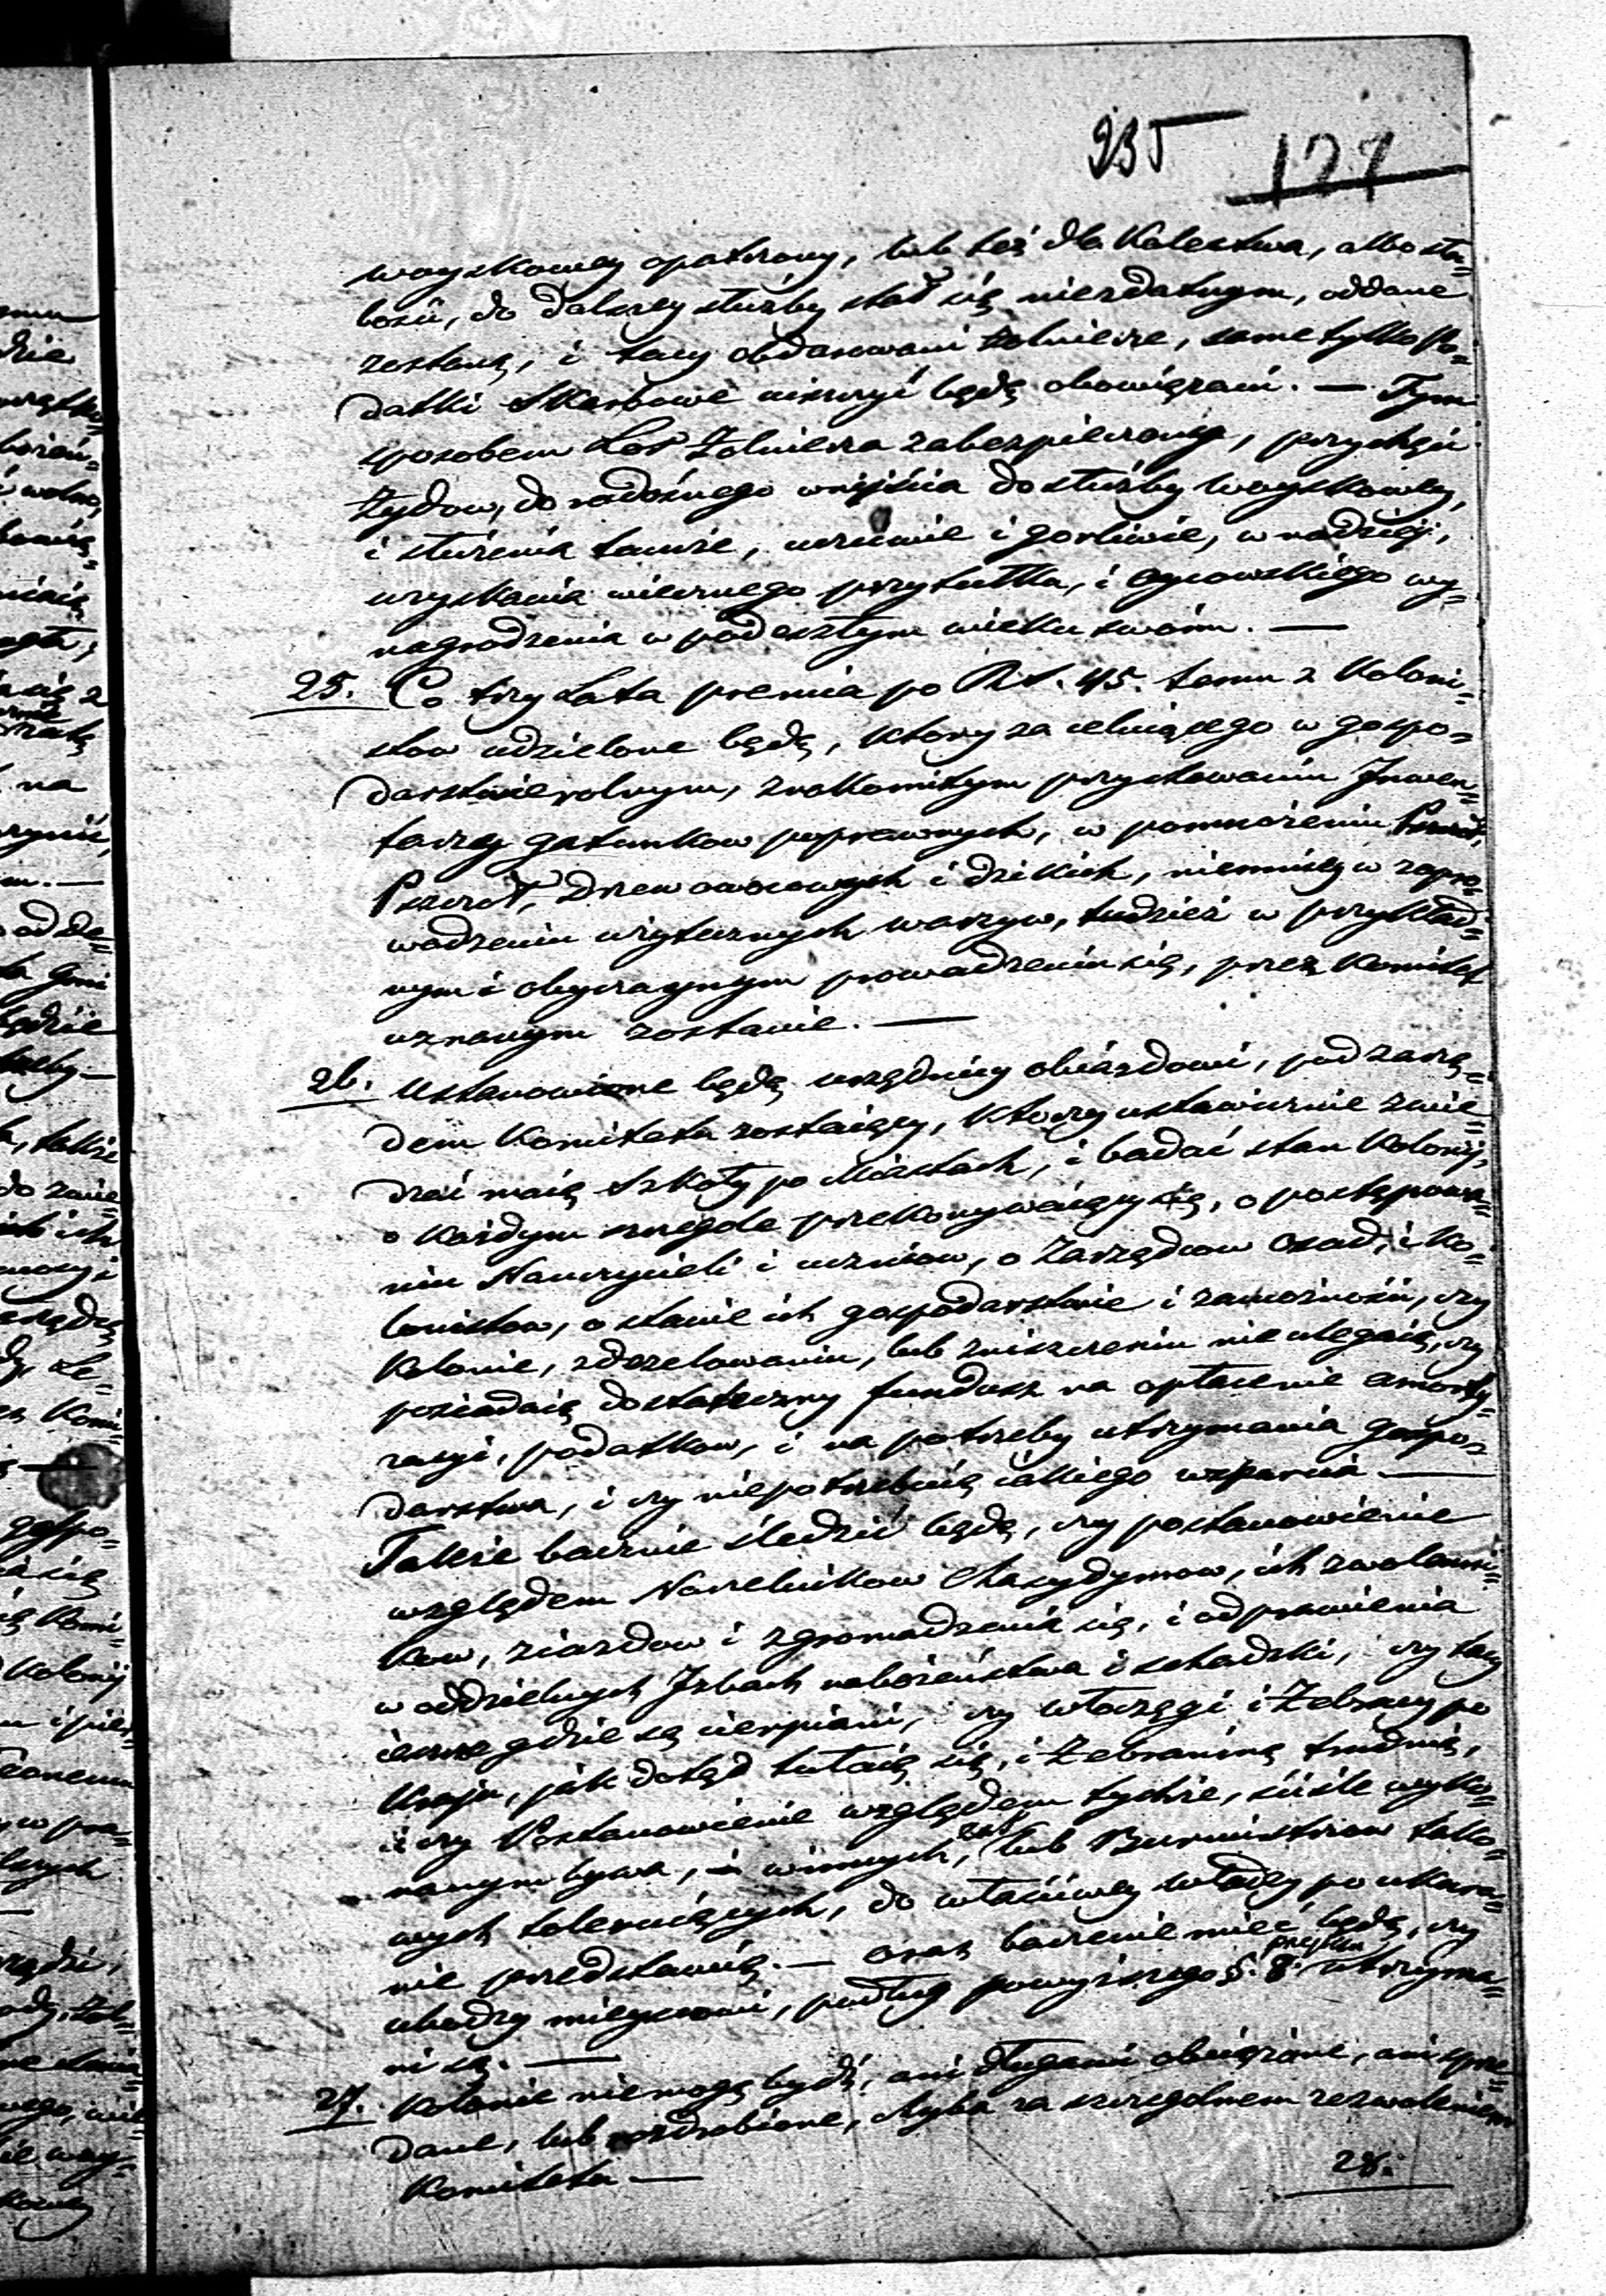 235 127
woyskowey opatrzony, lub też dla Kalectwa, albo sła=
bości, do dalszey służby stał się niezdatnym, oddane
zostaną, i tacy obdarowani Żołnierze, same tylko Po=
datki Skarbowe uiszczyć będą obowiązani. — Tym
sposobem Los Żołnierza zabezpieczony, przychęci
Żydow, do radośnego wnijścia do służby woyskowey,
i służenia tamże, uczciwie i gorliwie, w nadzieji,
uzyskania wiecznego przytułka, i oycowskiego wy=
nagrodzenia w podeszłym wieku swoim. —
25. Co trzy Lata premia po Rs. 45. temu z Koloni=
stow udzielone będą, ktory za celuiącego w gospo=
darstwie rolnym, znakomitym przychowaniu Inwen=
tarzy gatunkow poprawnych, w pomnożeniu
Pszczoł, Drzew owocowych i dzikich, niemniey w zapro=
wadzeniu użytecznych warzyw, tudzież w przykład=
nym i obyczaynym prowadzeniu się, przez Komitet
uznanym zostanie. —
26. Ustanowione będą urzędnicy obiazdowi, pod zarzą=
dem Komitetu zostaiący, ktorzy ustawicznie zwie=
dzać maią Szkoły po Miastach, i badać stan Kolonij,
o każdym szczegole przekonywaiąc się, o postępowa=
niu Nauczycieli i uczniow, o Zarządcow Osad, i Ko=
lonistow, o stanie ich gospodarstwie i zamożności, czy
Kolonie, zdezelowaniu, lub zniszczeniu nie ulegaią, czy
posiadaią dostateczny fundusz na opłacenie amorty=
zacyi, podatkow, i na potrzeby utrzymania gospo=
darstwa, i czy niepotrzebuią iakiego wsparcia —
Także bacznie śledzić będą, czy postanowienie
względem Naczelnikow Chasydymow, ich zwolenni=
kow, ziazdow i zgromadzenia się, i odprawienia
w oddzielnych Izbach nabożeństwa i schadzki, czy tacy
ieszcze gdzie są cierpiani, czy włoczęgi i Żebracy po
Kraju, jak dotąd tułaią się, i Żebraniną trudnią,
i czy Postanowienie względem tychże, ściśle wyko=
nanym bywa, winnych, zaś lub Burmistrzow tako=
wych toleruiących, do właściwey władzy po ukara=
nie przedstawią. — oraz baczenie mieć będą, czy
ubodzy mieyscowi, podług powyższego § 8. utrzyma=
ni są. —
27. Kolonie niemogą bydź, ani długami obciążone, ani sprze=
dane, lub rozdrobione, chyba za szczegolnem zezwoleniem
Komitetu —
28.